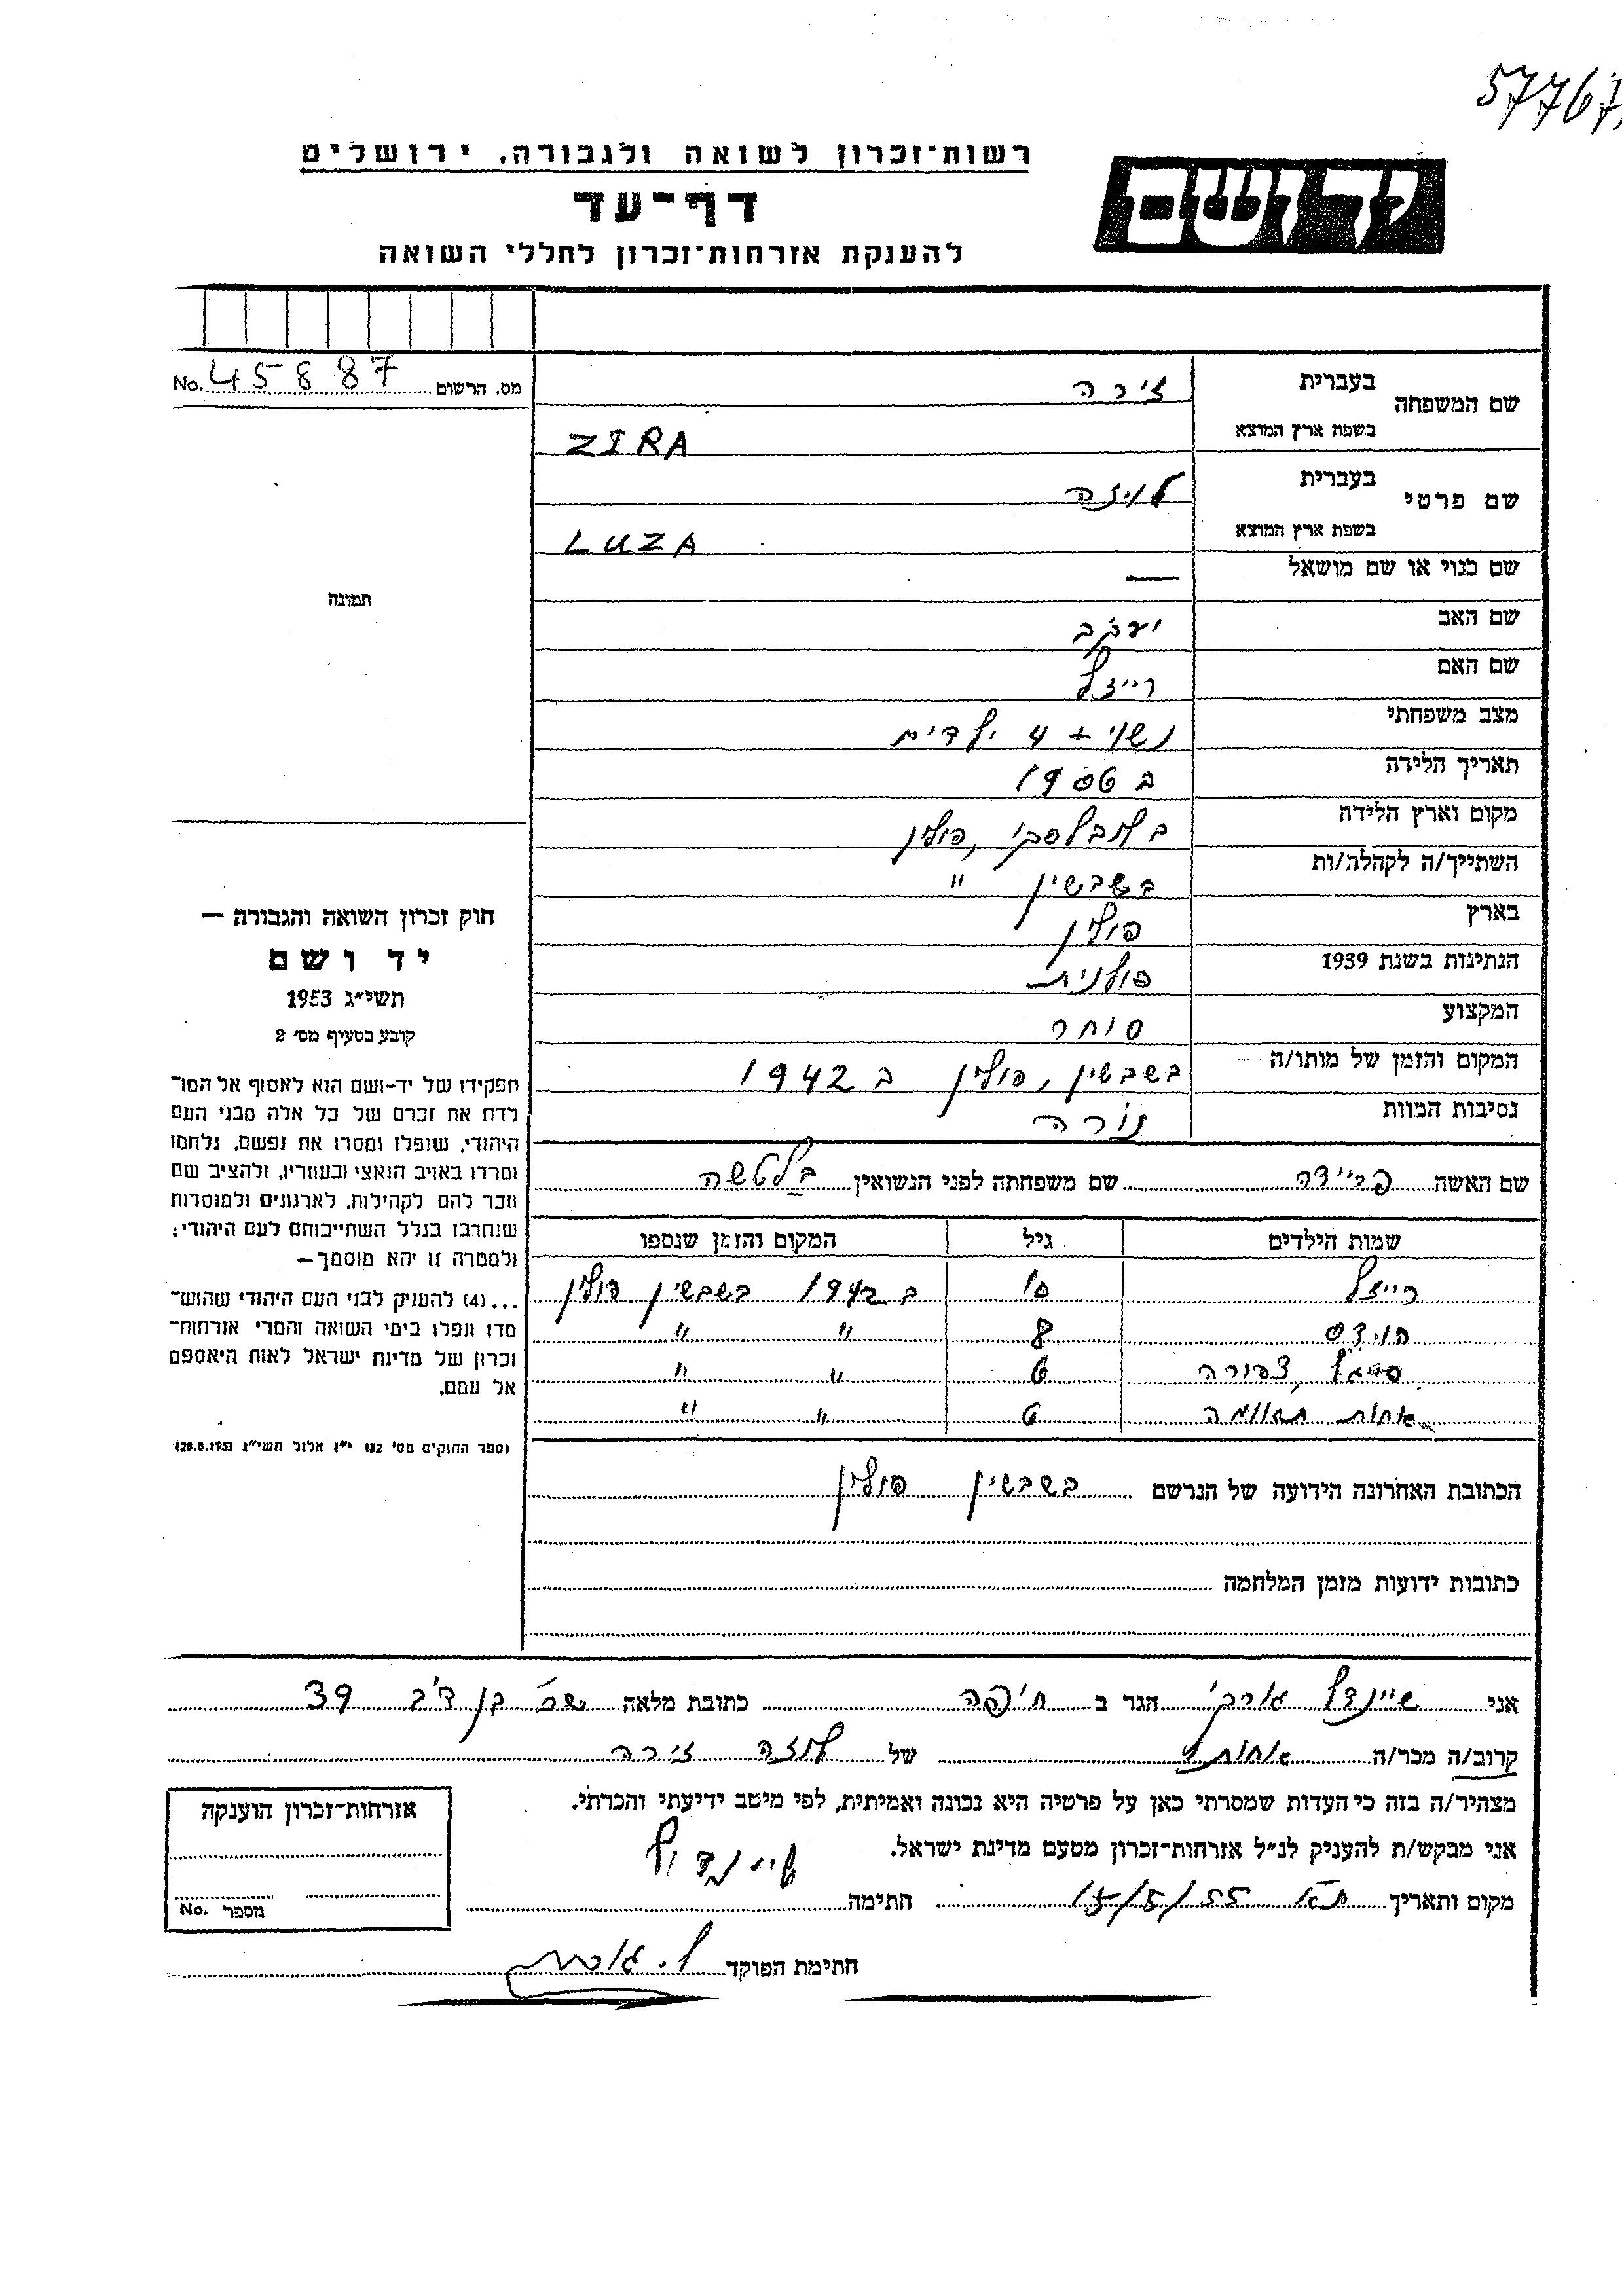 57767
רשות־זכרון לשואה ולגבורה. ירושלים
יד ושם
דף־עד
להענקת אזרחות־זכרון לחללי השואה
מס. הרשום 45887 No.
שם המשפחה בעברית זירה
בשפת ארץ המוצא ZIRA
שם פרטי בעברית לויזה
בשפת ארץ המוצא LUZA
שם כנוי או שם מושאל —
שם האב יעקב
שם האם רייזל
מצב משפחתי נשוי + 4 ילדים
תאריך הלידה ב 1906
מקום וארץ הלידה פולין
השתייך/ה לקהלה/ות בשבשין "
בארץ פולין
הנתינות בשנת 1939 פולנית
המקצוע סוחר
המקום והזמן של מותו/ה בשבשין, פולין ב 1942
נסיבות המוות נורה
שם האשה פריידה שם משפחתה לפני הנשואין
שמות הילדים גיל המקום והזמן שנספו
רייזל 10 ב 1942 בשבשין פולין
8 " "
פייגל, צפורה 6 " "
אחות תאומה 6 " "
הכתובת האחרונה הידועה של הנרשם בשבשין פולין
כתובות ידועות מזמן המלחמה
תמונה
חוק זכרון השואה והגבורה —
יד ושם
תשי״ג 1953
קובע בסעיף מס׳ 2
תפקידו של יד-ושם הוא לאסוף אל המו־
לדת את זכרם של כל אלה מבני העם
היהודי, שנפלו ומסרו את נפשם, נלחמו
ומרדו באויב הנאצי ובעוזריו, ולהציב שם
וזכר להם לקהילות, לארגונים ולמוסדות
שנחרבו בגלל השתייכותם לעם היהודי;
ולמטרה זו יהא מוסמך—
...(4) להעניק לבני העם היהודי שהוש־
מדו ונפלו בימי השואה והמרי אזרחות־
זכרון של מדינת ישראל לאות היאספם
אל עמם.
(ספר החוקים מס׳ 132 י״ז אלול תשי״ג 28.8.1953)
אני שיינדל הגר ב חיפה כתובת מלאה 39
קרוב/ה מכר/ה אחות של לוזה זירה
מצהיר/ה בזה כי העדות שמסרתי כאן על פרטיה היא נכונה ואמיתית, לפי מיטב ידיעתי והכרתי.
אני מבקש/ת להעניק לנ״ל אזרחות־זכרון מטעם מדינת ישראל.
מקום ותאריך 15/5/55 חתימה
חתימת הפוקד
אזרחות־זכרון הוענקה
מספר No.